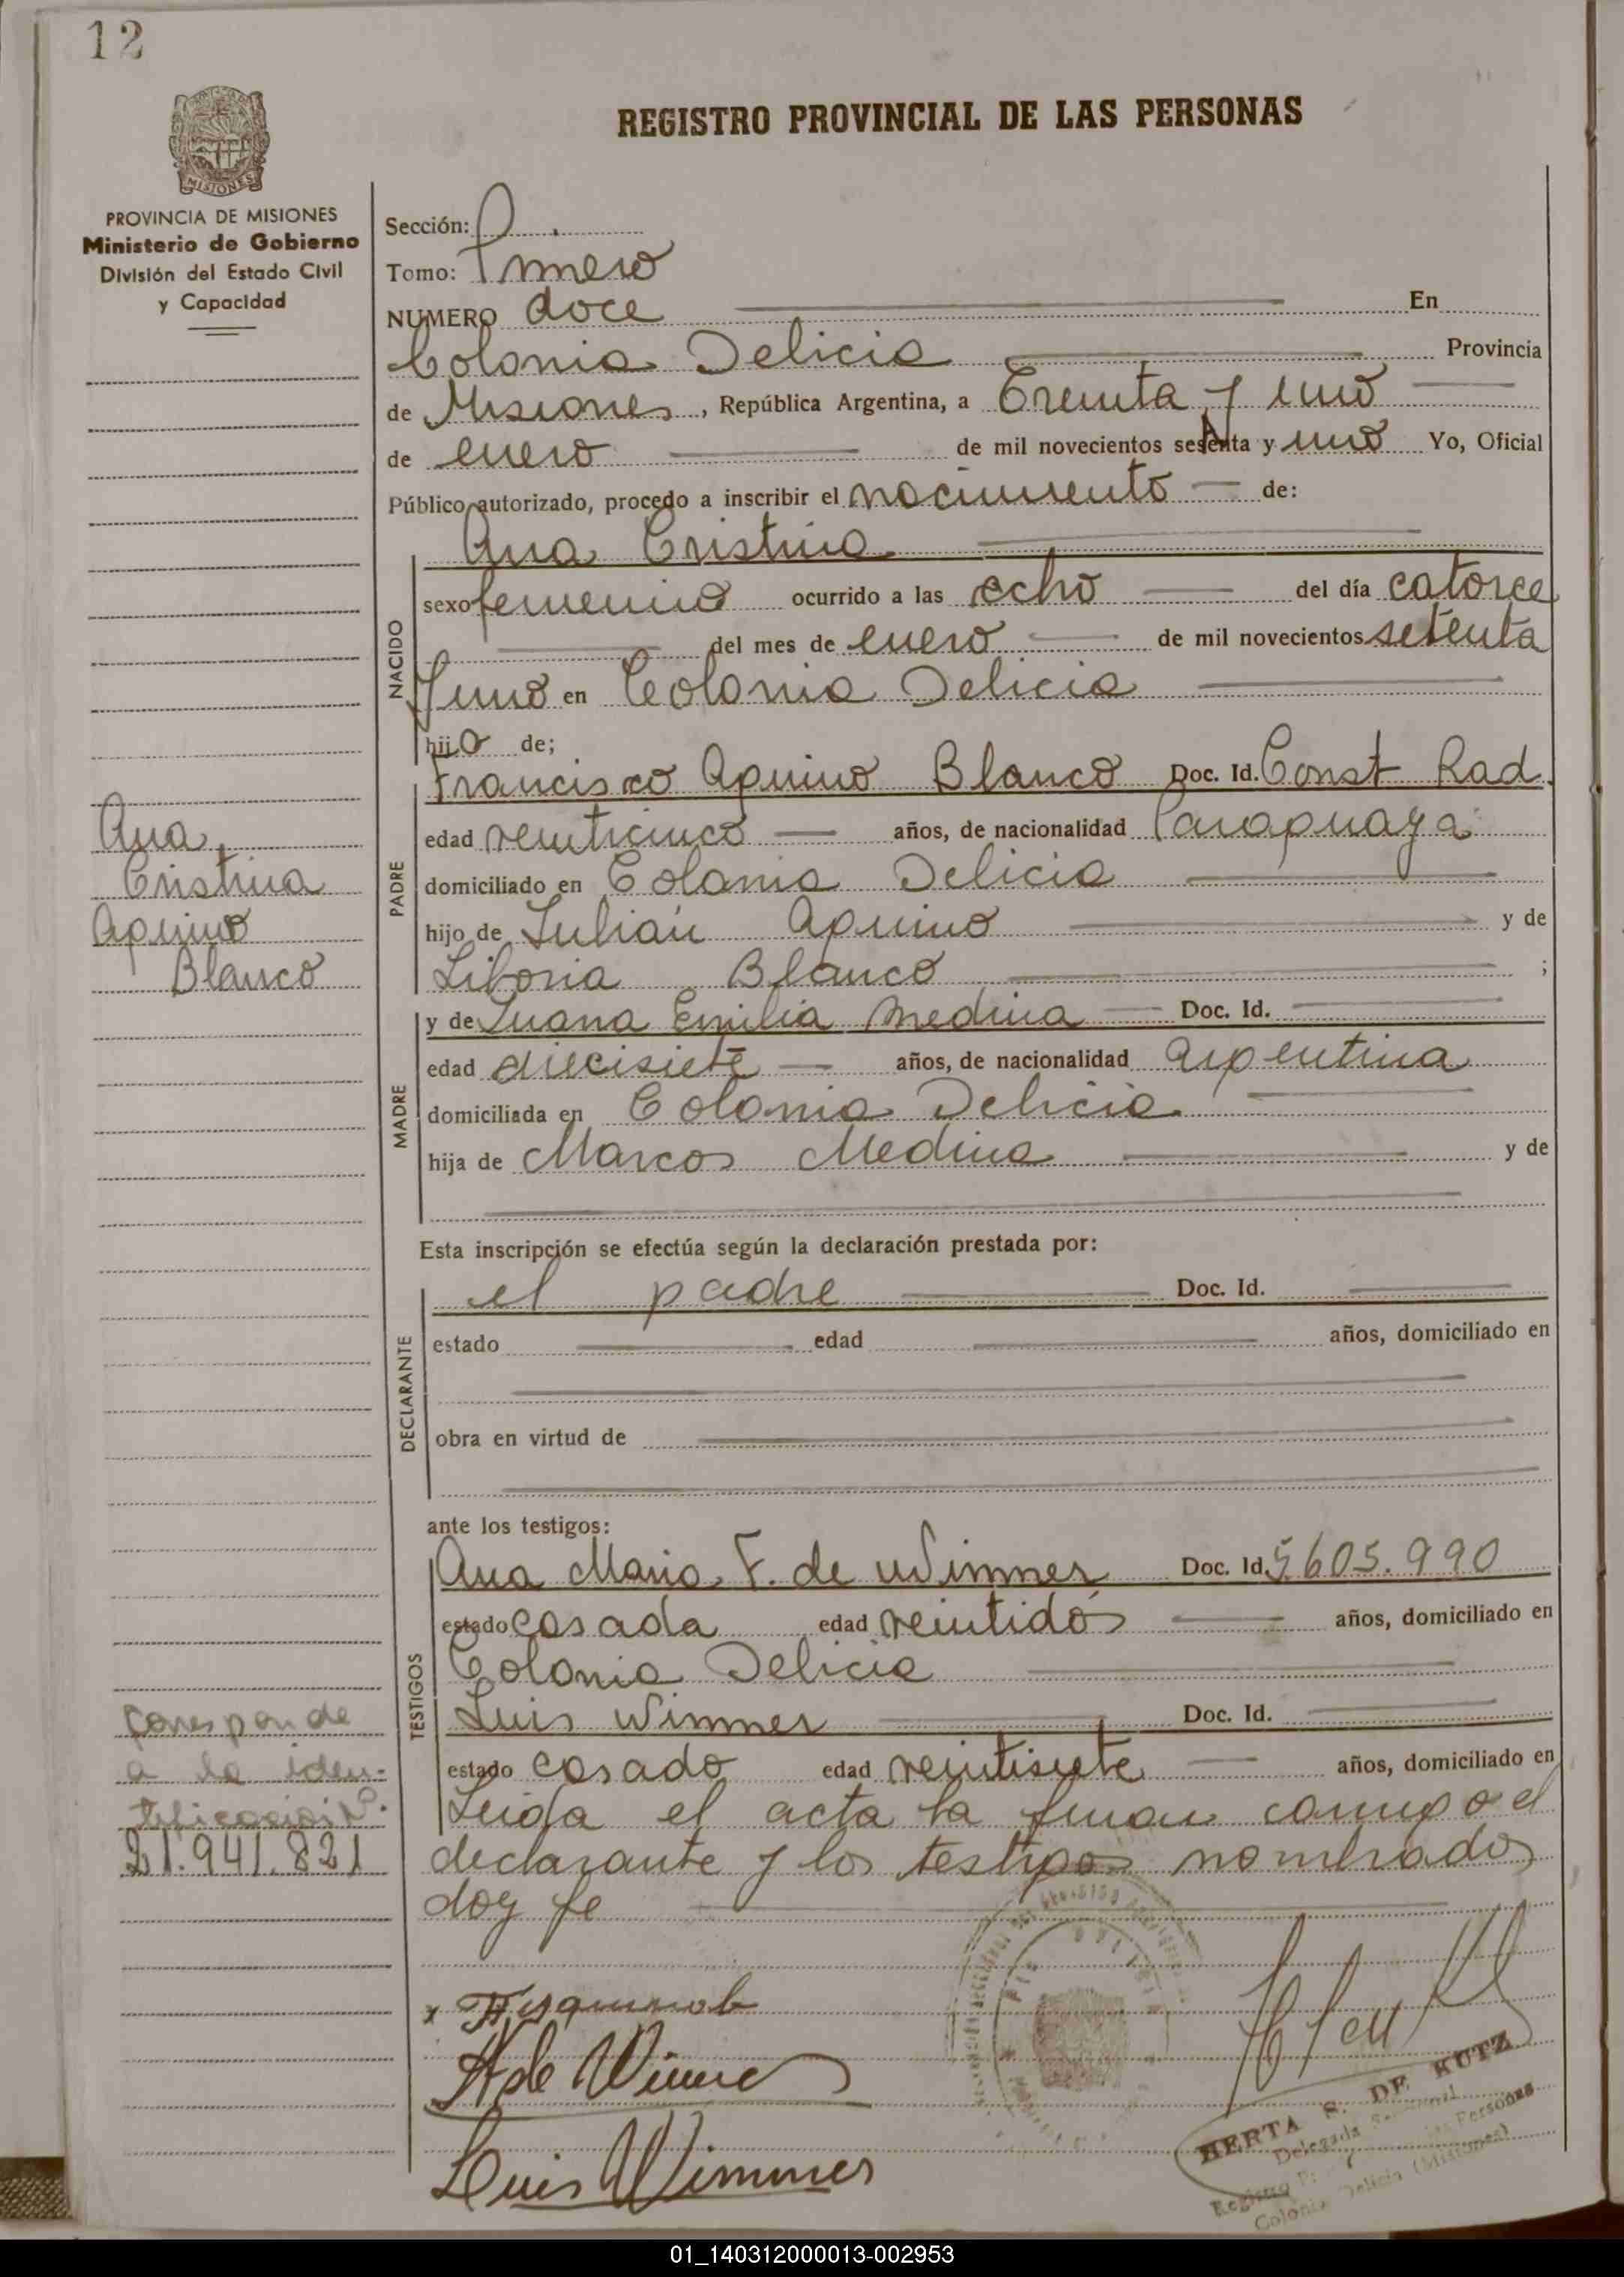 12
REGISTRO PROVINCIAL DE LAS PERSONAS
MISIONES
PROVINCIA DE MISIONES
Ministerio de Gobierno
División del Estado Civil
y Capacidad
Sección:
Tomo: Primero
NUMERO doce En
Colonia Delicia Provincia
de Misiones, República Argentina, a Treinta y uno
de enero de mil novecientos setenta y uno Yo, Oficial
Público autorizado, procedo a inscribir el nacimiento de:
Ana Cristina
NACIDO
sexo femenino ocurrido a las ocho del día catorce
del mes de enero de mil novecientos setenta
y uno en Colonia Delicia
hija de;
Francisco Aquino Blanco Doc. Id. Const Rad.
PADRE
edad veinticinco años, de nacionalidad Paraguaya
domiciliado en Colonia Delicia
hijo de Julián Aquino y de
Liboria Blanco ;
Ana
Cristina
Aquino
Blanco
y de Juana Emilia Medina Doc. Id.
MADRE
edad diecisiete años, de nacionalidad Argentina
domiciliada en Colonia Delicia
hija de Marcos Medina y de
Esta inscripción se efectúa según la declaración prestada por:
el padre Doc. Id.
DECLARANTE
estado edad años, domiciliado en
obra en virtud de
ante los testigos:
Ana Maria F. de Wimmer Doc. Id. 5605.990
TESTIGOS
estado casada edad veintidós años, domiciliado en
Colonia Delicia
Luis Wimmer Doc. Id.
estado casado edad veintisiete años, domiciliado en
Leida el acta la firman conmigo el
declarante y los testigos nombrados
doy fe
Corresponde
a la iden-
tificación Nº.
21.941.821
A de Wimmer
Luis Wimmer
HERTA S. DE KUTZ
Delegada
Personas
Colonia Delicia (Misiones)
01_140312000013-002953